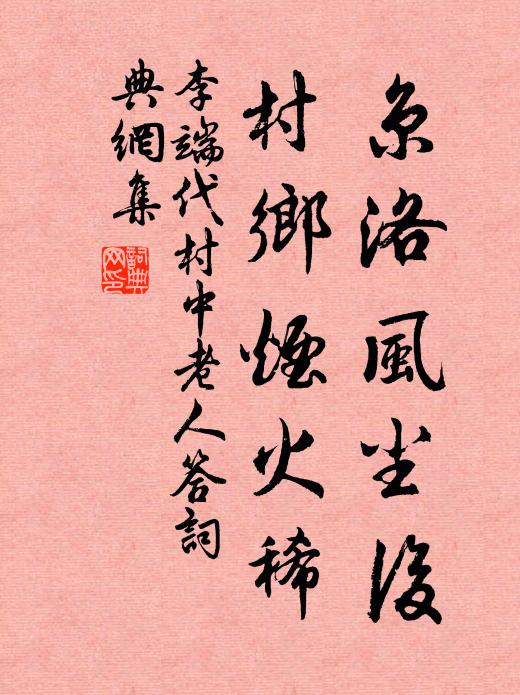 京洛風尘後
村鄉煙火稀
李端代村中老人答詞
典網集
詞典网印